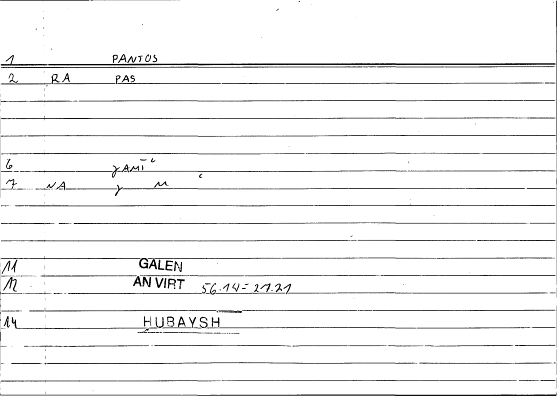 1 PANTOS
2 RA PAS
6 γAMĪʿ
7 NA γ M ʿ
11 GALEN
12 AN VIRT 56.14 = 21.21
14 HUBAYSH